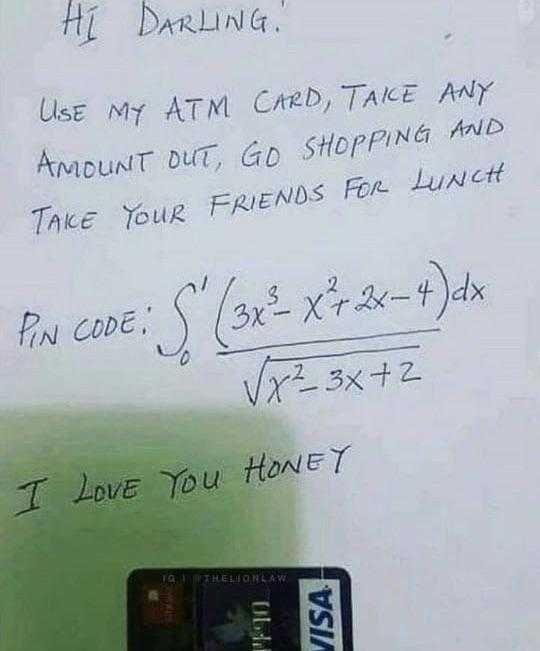 Hi DARLING.
USE MY ATM CARD, TAKE ANY
AMOUNT OUT, GO SHOPPING AND
TAKE YOUR FRIENDS FOR LUNCH
PIN CODE: ∫₀¹ (3x³ - x² + 2x - 4)dx
√x² - 3x + 2
I LOVE YOU HONEY
IG | @THELIONLAW
VISA